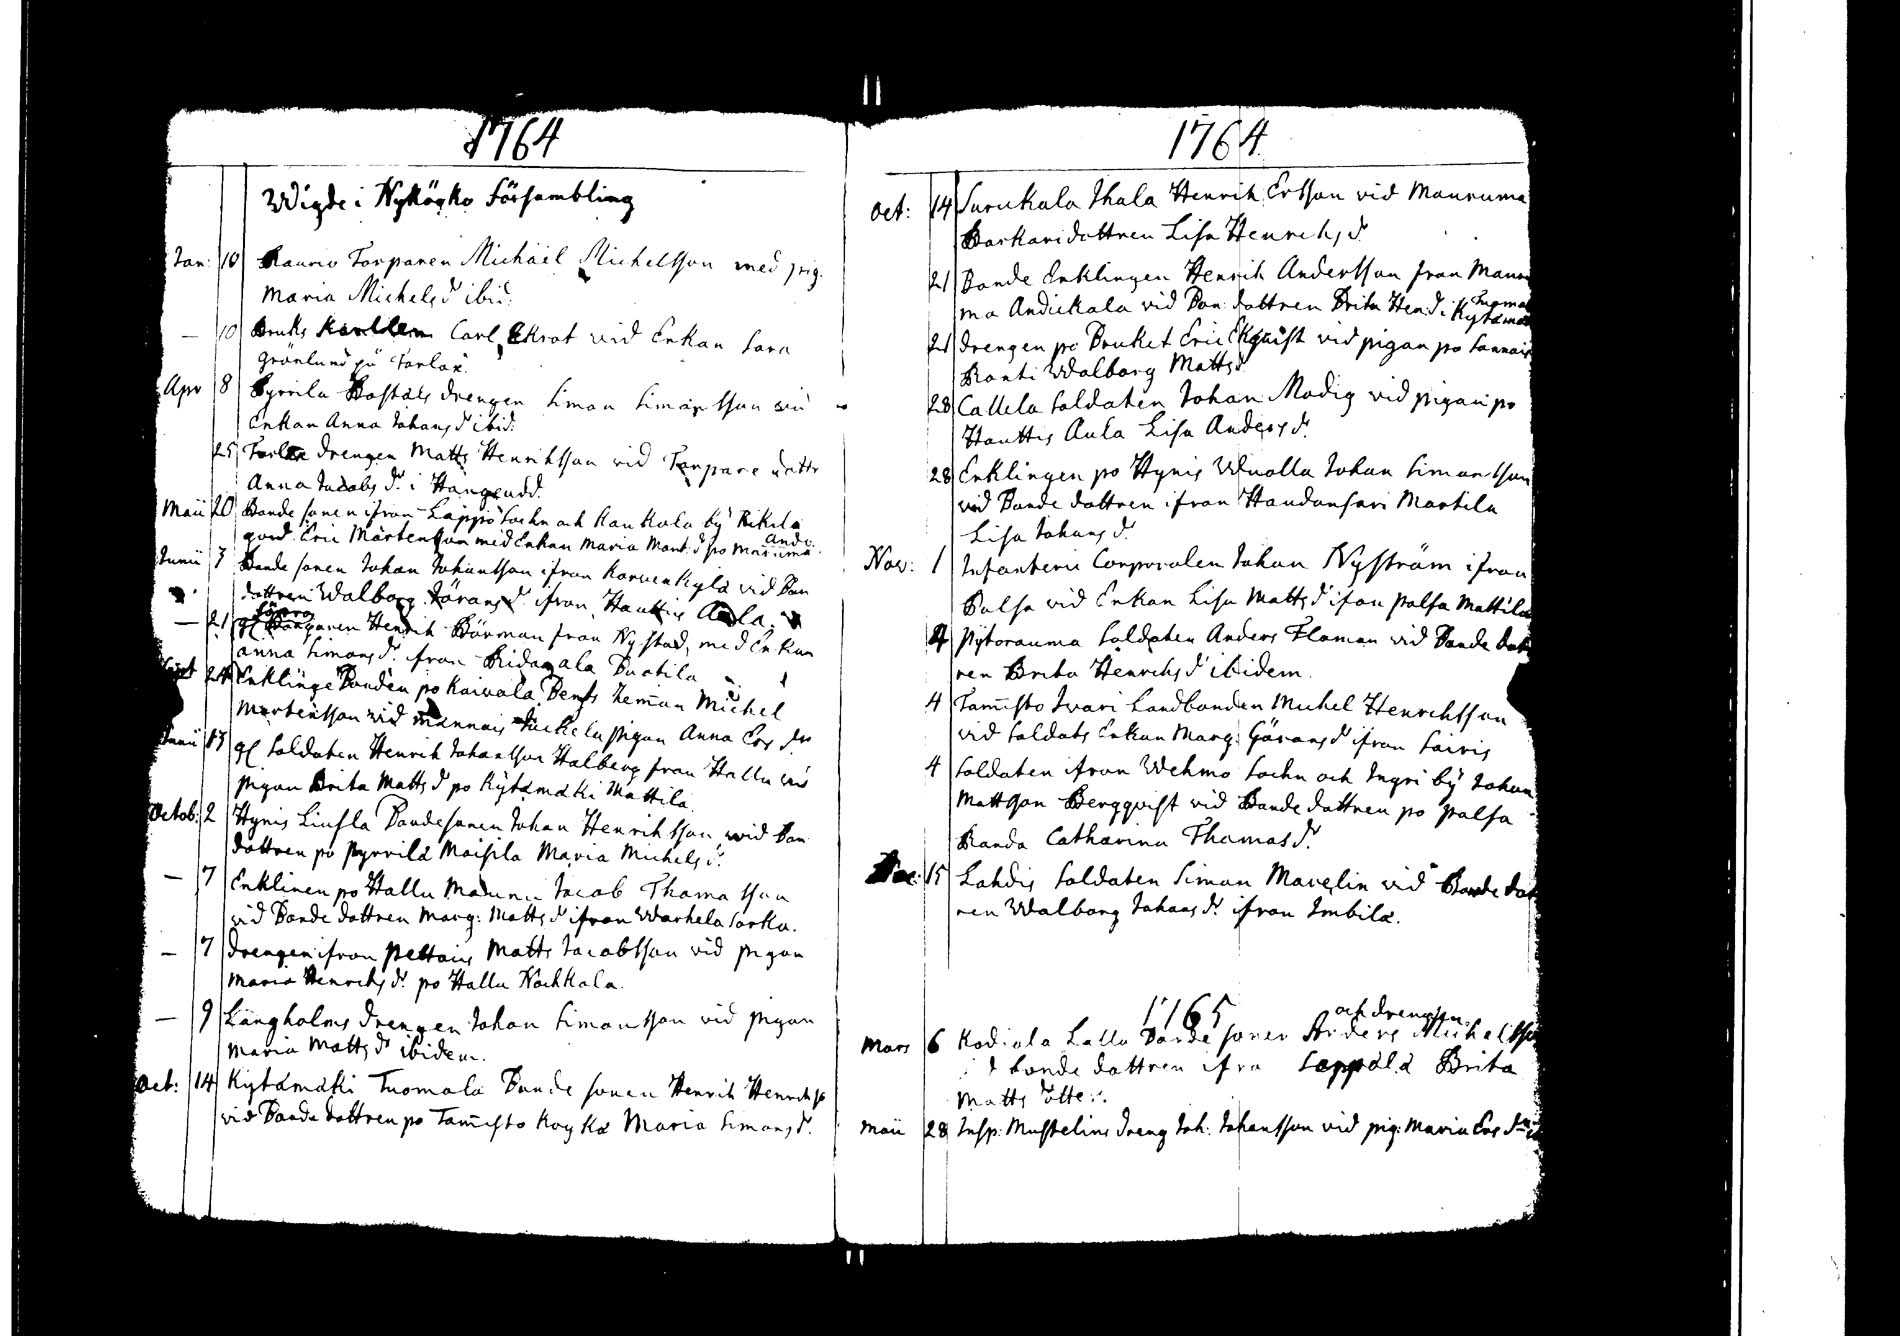 1764
Wigde i Nykögko Försambling
Jan: 10 Raurio Torparen Michäel Michelsson med pig.
Maria Michelsd ibid:
— 10 Bruks Carl Ekrot vid Enkan Sara
Grönlund på Tarlax.
Apr 8 Pyrrila Bostäls drengen Simon Simonsson vid
Enkan Anna Johansd ibid:
25 drengen Matts Henriksson vid Torpare dottr
Anna Jacobsd. i Hangeudd.
Maii 20 Bonde sonen ifron Lappo Sochn och Kaukola by Rikila
gord Eric Mårtensson med Enkan Maria Mart:d po Mauruma Ando
Junii 3 Bonde sonen Johan Johansson ifron Korvenkylä vid Bon
dottren Walborg Jöransd ifron Hauttis Aula.
— 21 gl Henrik Börman fron Nystad, med Enkan
Anna Simonsd. fron Kidaxala Puotila
Sept 24 Enklinge Bonden po Kaivala Bents hemman Michel
Mortensson vid Mannais Pigan Anna Ers dr
Junii 13 gl Soldaten Henrik Johansson Halberg fron Hallu vid
pigan Brita Mattsd po Kytämäki Mattila.
Octob: 2 Hynis Liusla Bondesonen Johan Henriksson vid Bon
dottren po Pyrvilä Maisila Maria Michelsd.
— 7 Enklinen po Hallu Jacob Thomasson
vid Bonde dottren Marg: Mattsd ifron Warhela Sorka.
— 7 drengen ifron Pettais Matts Jacobsson vid pigan
Maria Henrichsd. po Hallu Nochkala.
— 9 Långholms drengen Johan Simonsson vid pigan
Maria Mattsd ibidem.
Oct: 14 Kytämäki Tuomola Bonde sonen Henrik Henrichs
vid Bonde dottren po Tamisto Koyka Maria Simonsd.
1764
Oct: 14 Surukala Ihala Henrik Ersson vid Mauruma
Barkari dottren Lisa Henrichsd.
21 Bonde Enklingen Henrik Andersson fron Mauru
ma Andickala vid Bon: dottren Brita Hen.d. i Kytämä Tuomal
21 Drengen po Bruket Eric Ekquist vid pigan po Sannais
Ranti Walborg Mattsd
28 Callela Soldaten Johan Modig vid pigan po
Hauttis Aula Lisa Andersd.
28 Enklingen po Hynis Wuolla Johan Simonsson
vid Bonde dottren ifron Haudansari Martila
Lisa Johansd.
Nov: 1 Infanterie Corporalen Johan Nyström ifron
Palsa vid Enkan Lisa Mattsd ifon Palsa Mattila
4 Pytorauma Soldaten Anders Floman vid Bonde dott
ren Brita Henrichsd ibidem.
4 Tamisto Ivari Landbonden Michel Henrichsson
vid Soldats Enkan Marg: Göransd ifron Sairis
4 Soldaten ifron Wehmo Sochn och Ingri by Johan
Mattsson Bergqvist vid Bonde dottren po Palsa
Randa Catharina Thomasd.
15 Lahdis Soldaten Simon Mavelin vid Bonde dot
ren Walborg Johansd. ifron Imbilä.
1765
Mars 6 Kodiala Lallu Bonde sonen och drengen Anders Michelsson
bonde dottren ifro Seppälä Brita
Matts dotter.
Maii 28 Insp: Mustelins Dreng Joh: Johansson vid pig: Maria Ers